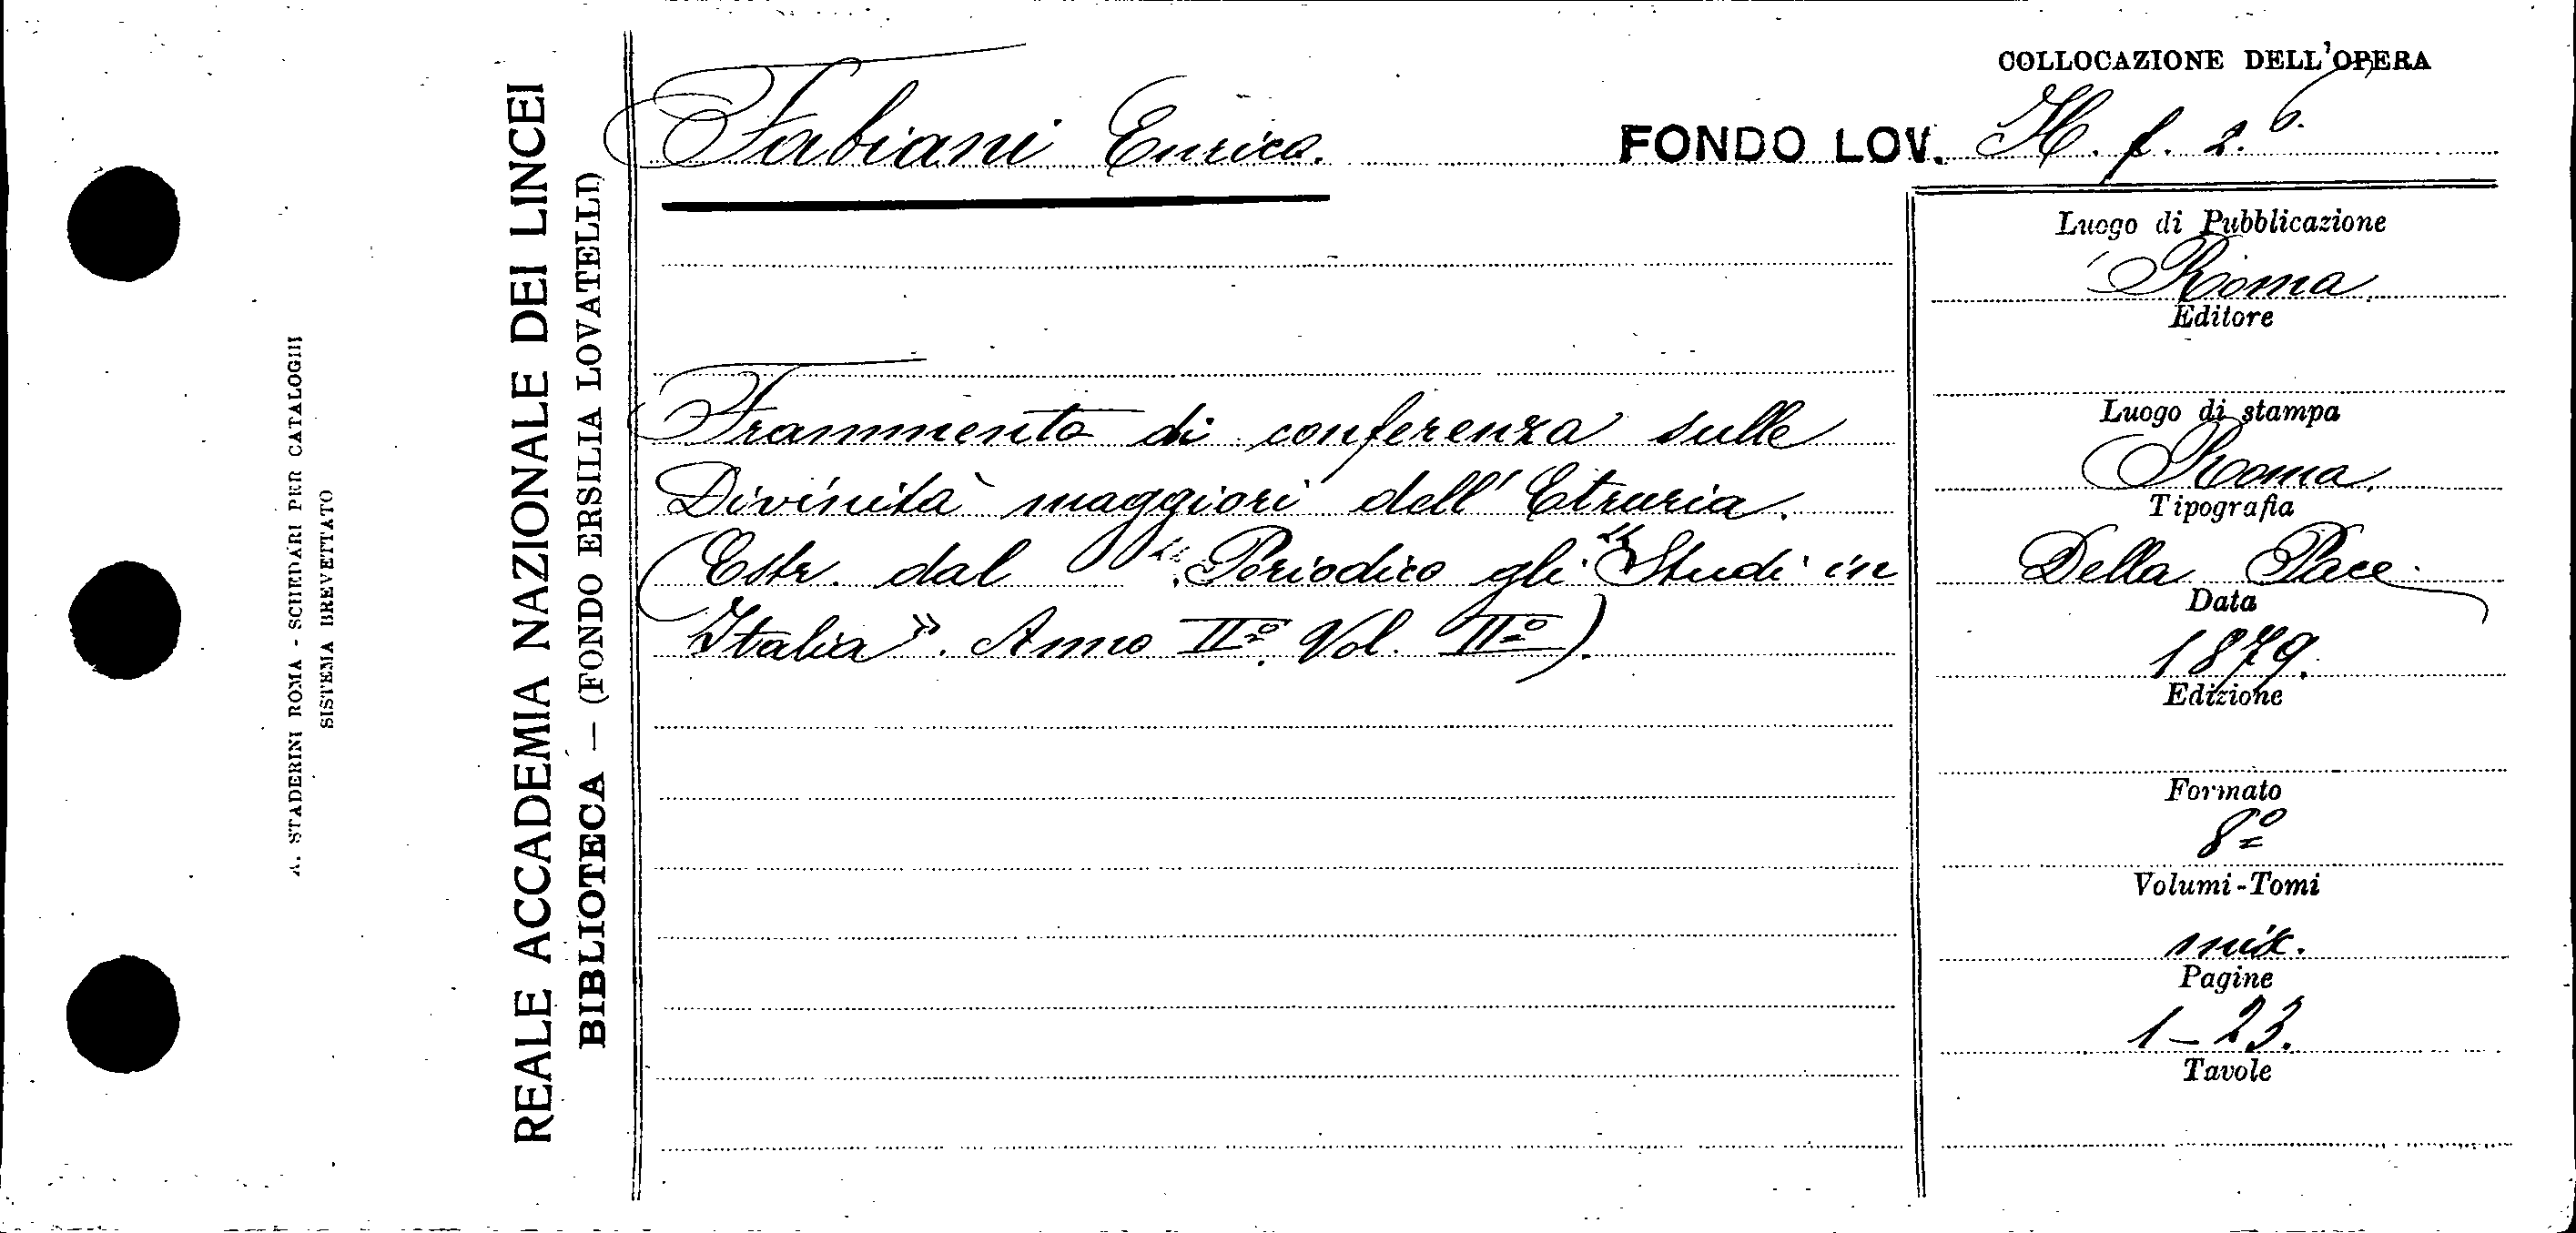 A. STADERINI ROMA - SCHEDARI PER CATALOGHI
SISTEMA BREVETTATO
REALE ACCADEMIA NAZIONALE DEI LINCEI
BIBLIOTECA — (FONDO ERSILIA LOVATELLI)
COLLOCAZIONE DELL'OPERA
Fabiani Enrico. FONDO LOV. H. f. 2. 6.
Frammento di conferenza sulle
Divinità maggiori dell' Etruria.
(Estr. dal "Periodico gli "Studi in
Italia". Anno IIº. Vol. IIº).
Luogo di Pubblicazione
Roma
Editore
Luogo di stampa
Roma.
Tipografia
Della Pace
Data
1879.
Edizione
Formato
8º
Volumi-Tomi
misc.
Pagine
1-23.
Tavole